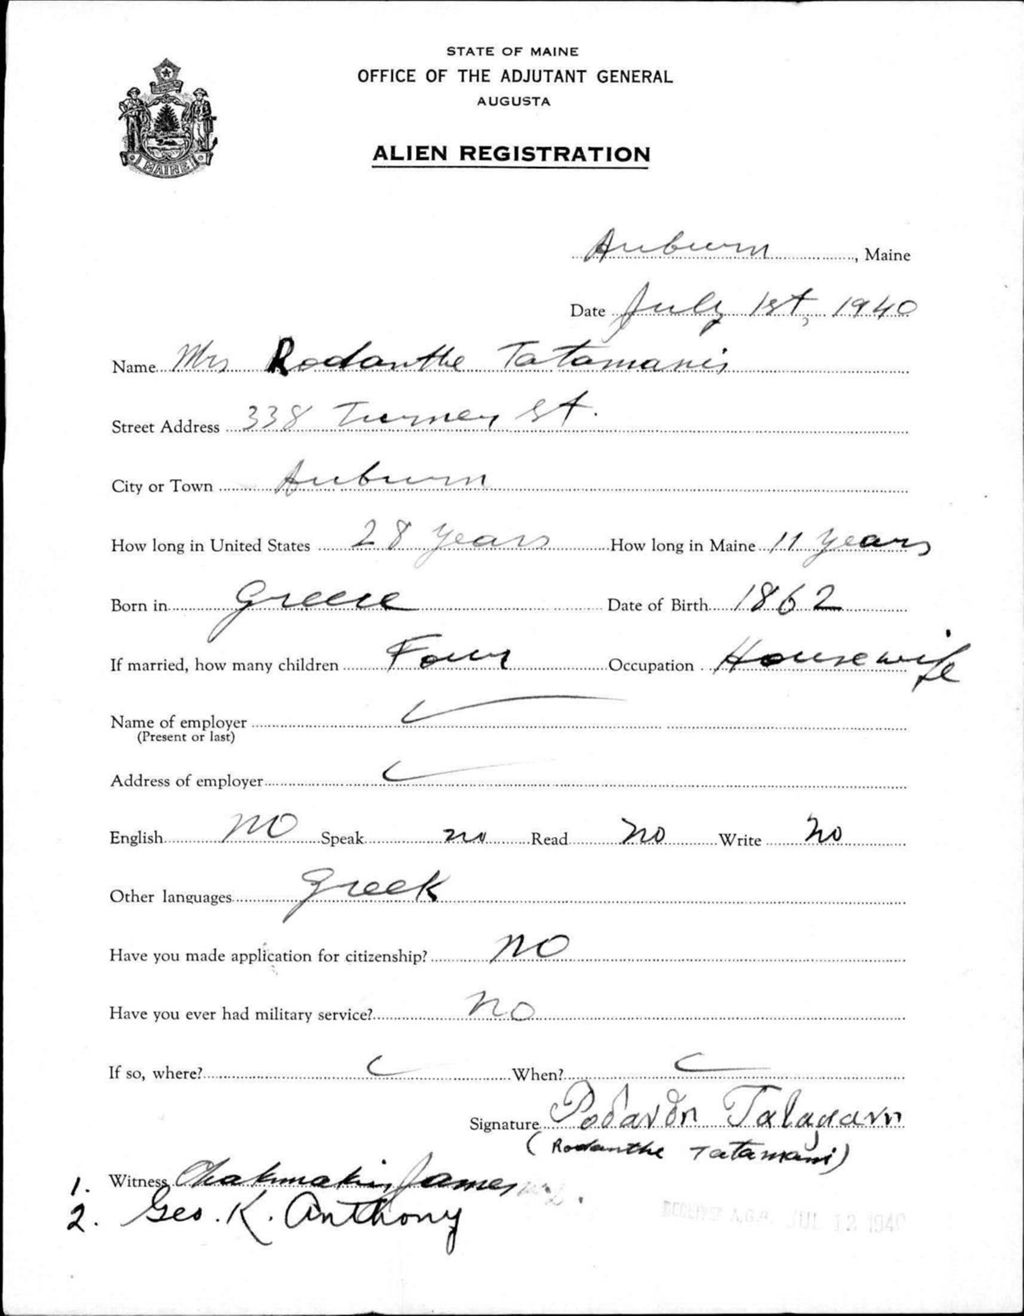 STATE OF MAINE
OFFICE OF THE ADJUTANT GENERAL
AUGUSTA
ALIEN REGISTRATION
MAINE
Auburn, Maine
Date July 1st, 1940
Name Mrs Rodanthe Tatamanis
Street Address 338 Turner St.
City or Town Auburn
How long in United States 28 years How long in Maine 11 years
Born in Greece Date of Birth 1862
If married, how many children Four Occupation Housewife
Name of employer
(Present or last)
Address of employer
English NO Speak no Read No Write No
Other languages Greek
Have you made application for citizenship? NO
Have you ever had military service? No
If so, where? When?
Signature
(Rodanthe Tatamani)
1. Witness Chakmakis James
2. Geo. K. Anthony
RECEIVED A.G.O. JUL 12 1940